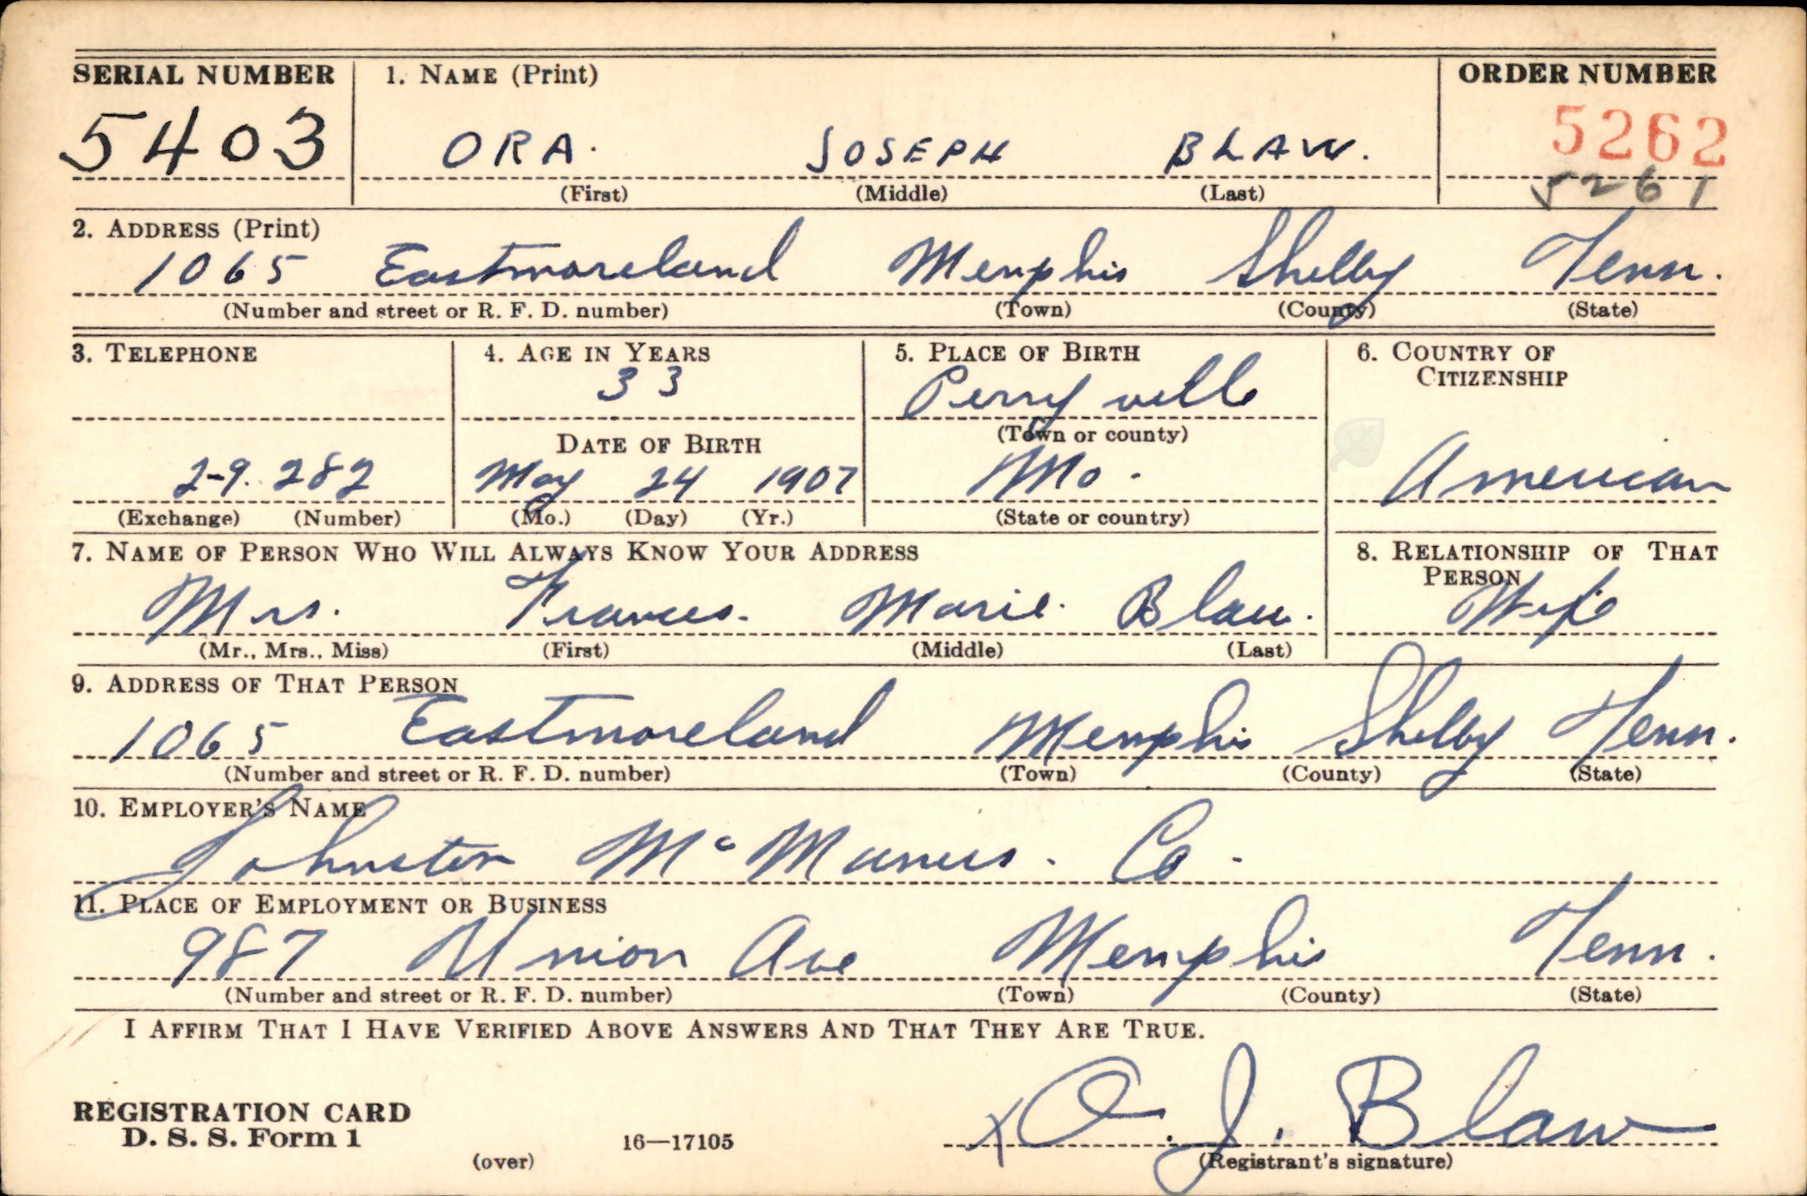 SERIAL NUMBER 1. NAME (Print) ORDER NUMBER
5403 ORA. JOSEPH BLAW. 5262
(First) (Middle) (Last) 5261
2. ADDRESS (Print)
1065 Eastmoreland Memphis Shelby Tenn.
(Number and street or R. F. D. number) (Town) (County) (State)
3. TELEPHONE 4. AGE IN YEARS 5. PLACE OF BIRTH 6. COUNTRY OF
CITIZENSHIP
33 Perryville
(Town or county)
DATE OF BIRTH
2-9. 282 May 24 1907 Mo. American
(Exchange) (Number) (Mo.) (Day) (Yr.) (State or country)
7. NAME OF PERSON WHO WILL ALWAYS KNOW YOUR ADDRESS 8. RELATIONSHIP OF THAT
PERSON
Mrs. Frances. Marie. Blaw. Wife
(Mr., Mrs., Miss) (First) (Middle) (Last)
9. ADDRESS OF THAT PERSON
1065 Eastmoreland Memphis Shelby Tenn.
(Number and street or R. F. D. number) (Town) (County) (State)
10. EMPLOYER'S NAME
Johnston McManus. Co.
11. PLACE OF EMPLOYMENT OR BUSINESS
987 Union Ave Memphis Tenn.
(Number and street or R. F. D. number) (Town) (County) (State)
I AFFIRM THAT I HAVE VERIFIED ABOVE ANSWERS AND THAT THEY ARE TRUE.
REGISTRATION CARD
D. S. S. Form 1 16—17105 x O. J. Blaw
(over) (Registrant's signature)